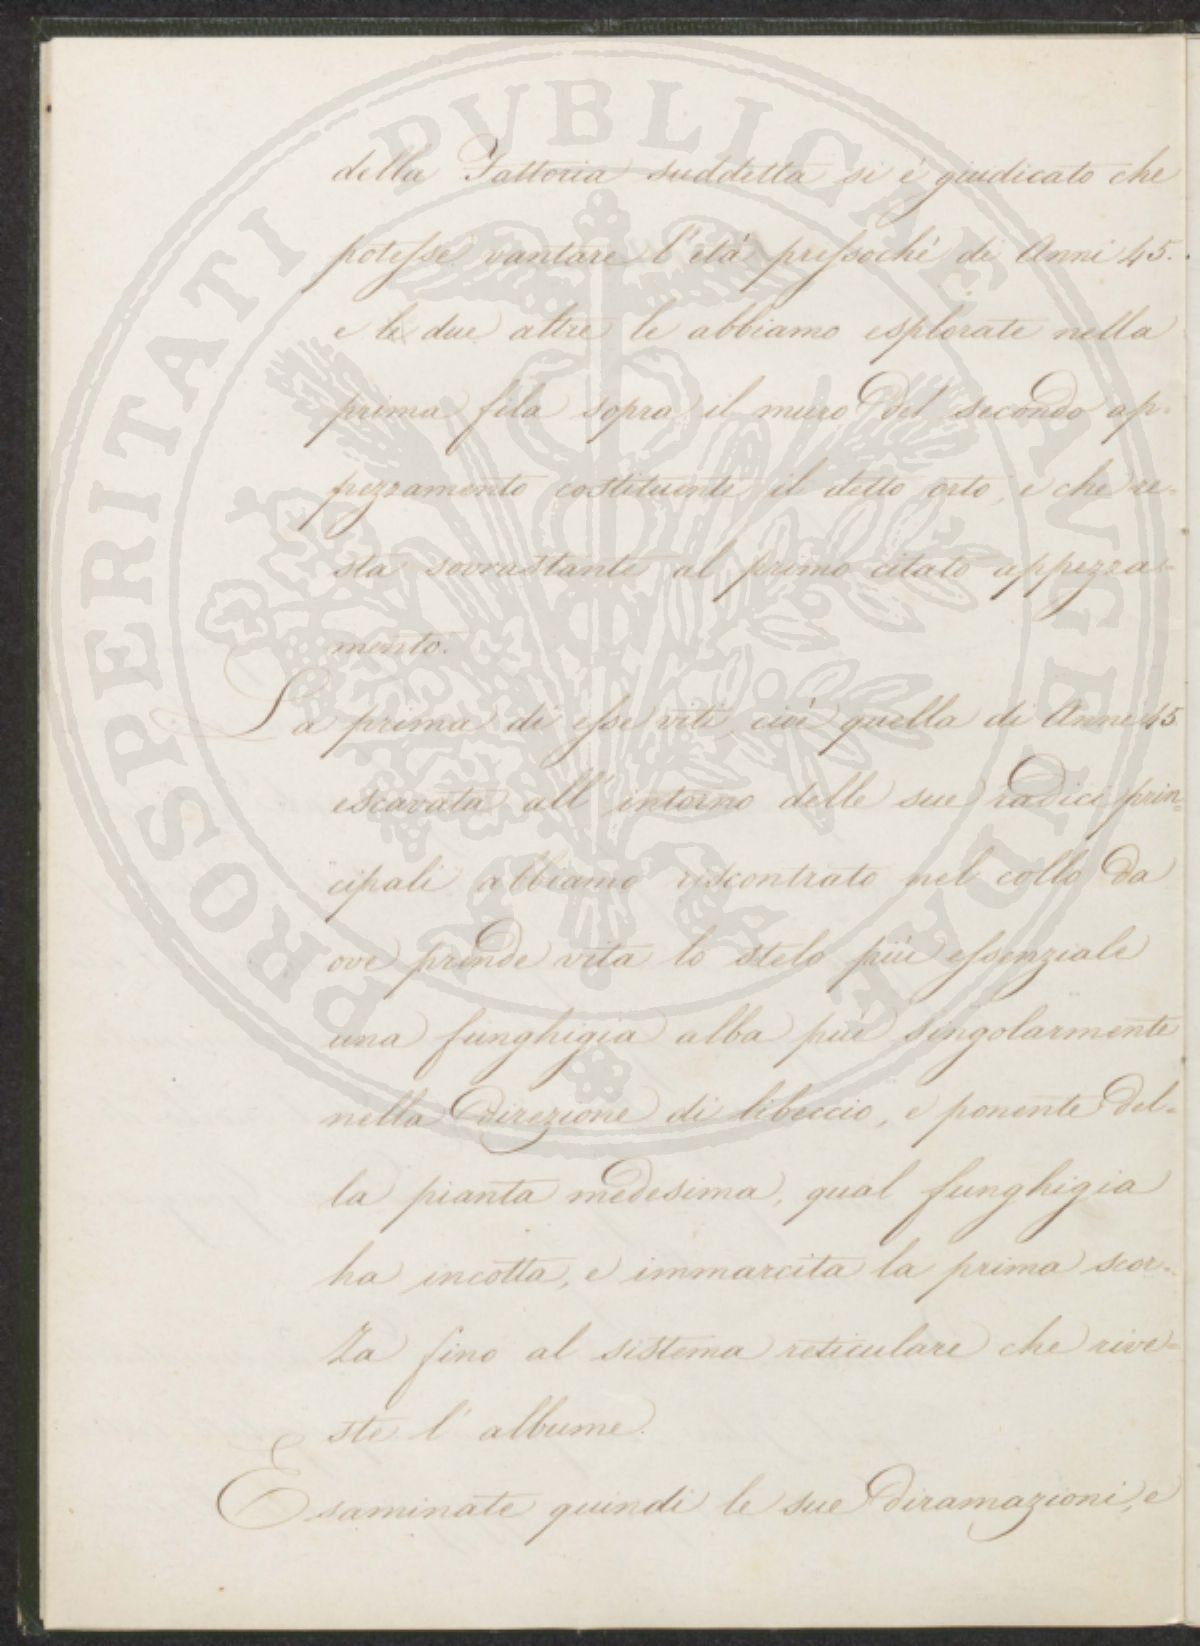 della Fattoria suddetta si è giudicato che
potesse vantare l'età pressochè di Anni 45.
e le due altre le abbiamo esplorate nella
prima fila sopra il muro del secondo ap-
pezzamento costituente il detto orto, e che re-
sta sovrastante al primo citato appezza-
mento.
La prima di esse viti, cioè quella di Anni 45
escavata all'intorno delle sue radici prin-
cipali abbiamo riscontrato nel collo da
ove prende vita lo stelo più essenziale
una funghigia alba più singolarmente
nella direzione di libeccio, e ponente del-
la pianta medesima, qual funghigia
ha incotta, e immarcita la prima scor-
za fino al sistema reticulare che rive-
ste l'albume.
Esaminate quindi le sue diramazioni, e
PROSPERITATI PVBLICAE AVGENDAE